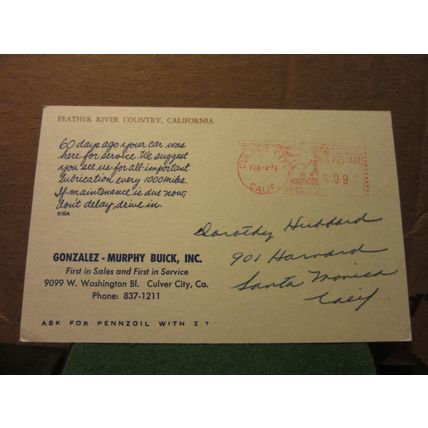 FEATHER RIVER COUNTRY, CALIFORNIA
60 days ago your car was
here for service. We suggest
you see us for all-important
lubrication every 1000 miles.
If maintenance is due now,
don't delay, drive in.
GONZALEZ - MURPHY BUICK, INC.
First in Sales and First in Service
9099 W. Washington Bl. Culver City, Ca.
Phone: 837-1211
ASK FOR PENNZOIL WITH Z-7
CULVER CITY
CALIF.
U.S. POSTAGE
Dorothy Hubbard
901 Harvard
Santa Monica
Calif